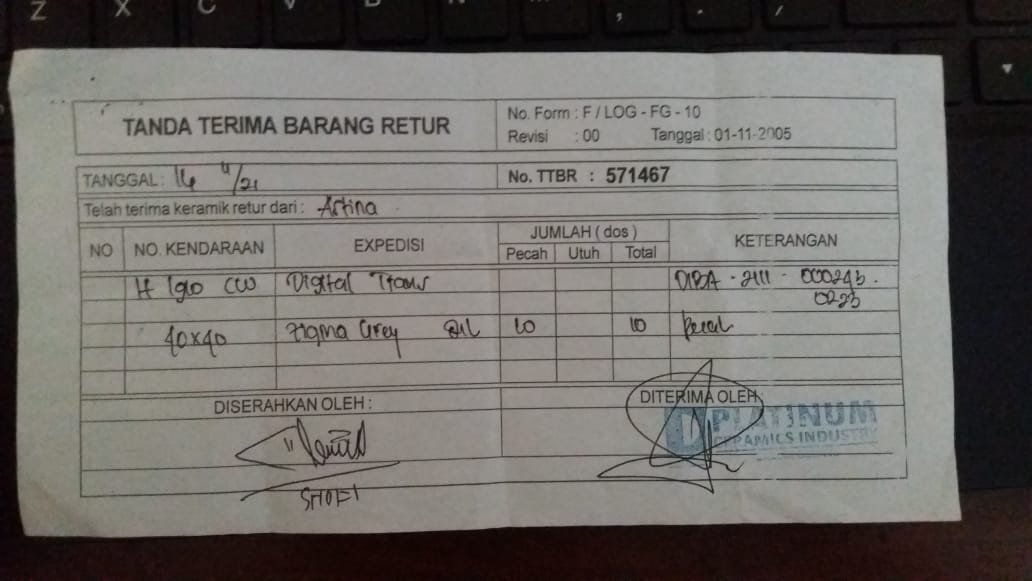 TANDA TERIMA BARANG RETUR
No. Form : F / LOG - FG - 10
Revisi : 00 Tanggal : 01-11-2005
TANGGAL : 14 4/21
No. TTBR : 571467
Telah terima keramik retur dari : Artina
NO NO. KENDARAAN EXPEDISI JUMLAH ( dos ) KETERANGAN
Pecah Utuh Total
H CW Digital Trans - 2111 - 000243.
0223
40x40 Figma Grey 10 10 Pecah
DISERAHKAN OLEH :
DITERIMA OLEH :
PLATINUM
CERAMICS INDUSTRY
SHOFI